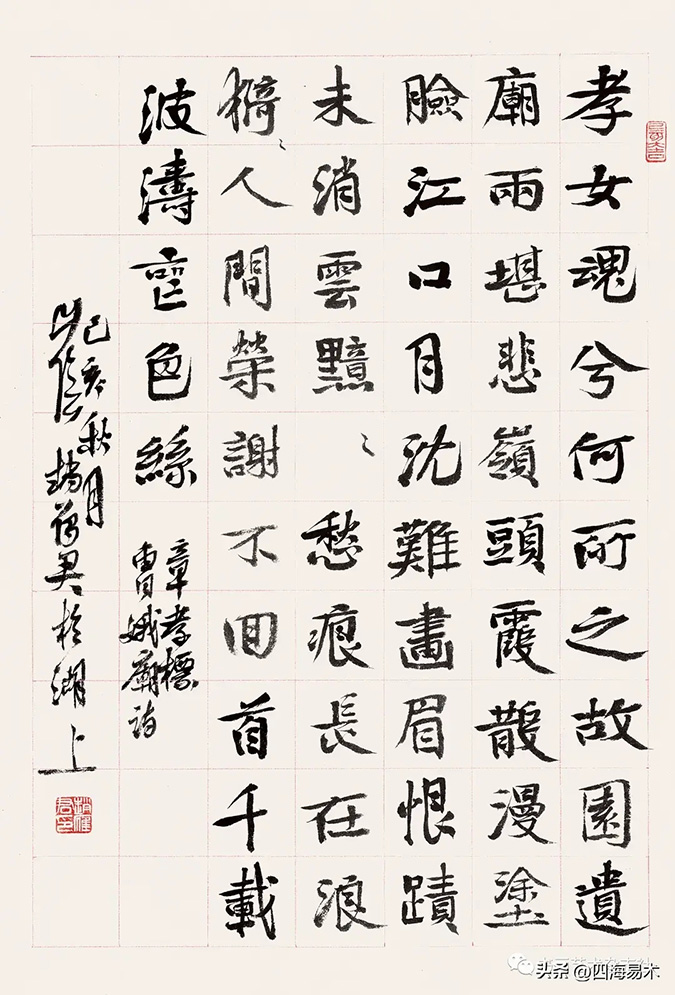 孝女魂兮何所之故園遺
廟兩堪悲嶺頭霞散漫塗
臉江口月沈難畫眉恨蹟
未消雲黯〻愁痕長在浪
漪〻人間榮謝不回首千載
波濤色絲
章孝標
曹娥廟詩
己亥秋月
山陰趙雁君於湖上
头条 @四海易术